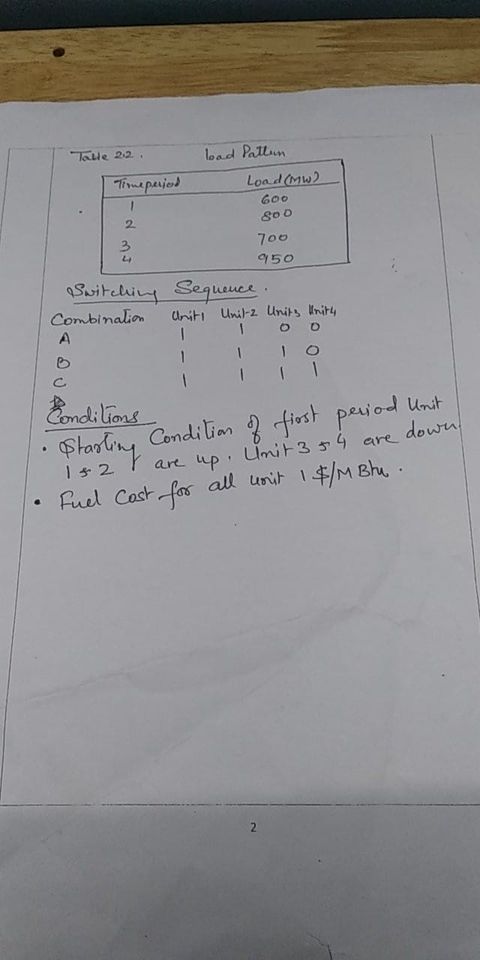 Table 2.2. Load Pattern
Time period Load (MW)
1 600
2 800
3 700
4 950
Switching Sequence.
Combination Unit 1 Unit-2 Unit 3 Unit 4
A 1 1 0 0
B 1 1 1 0
C 1 1 1 1
Conditions
• Starting Condition of first period Unit
1 & 2 are up. Unit 3 & 4 are down
• Fuel Cost for all unit 1 $/M Btu.
2